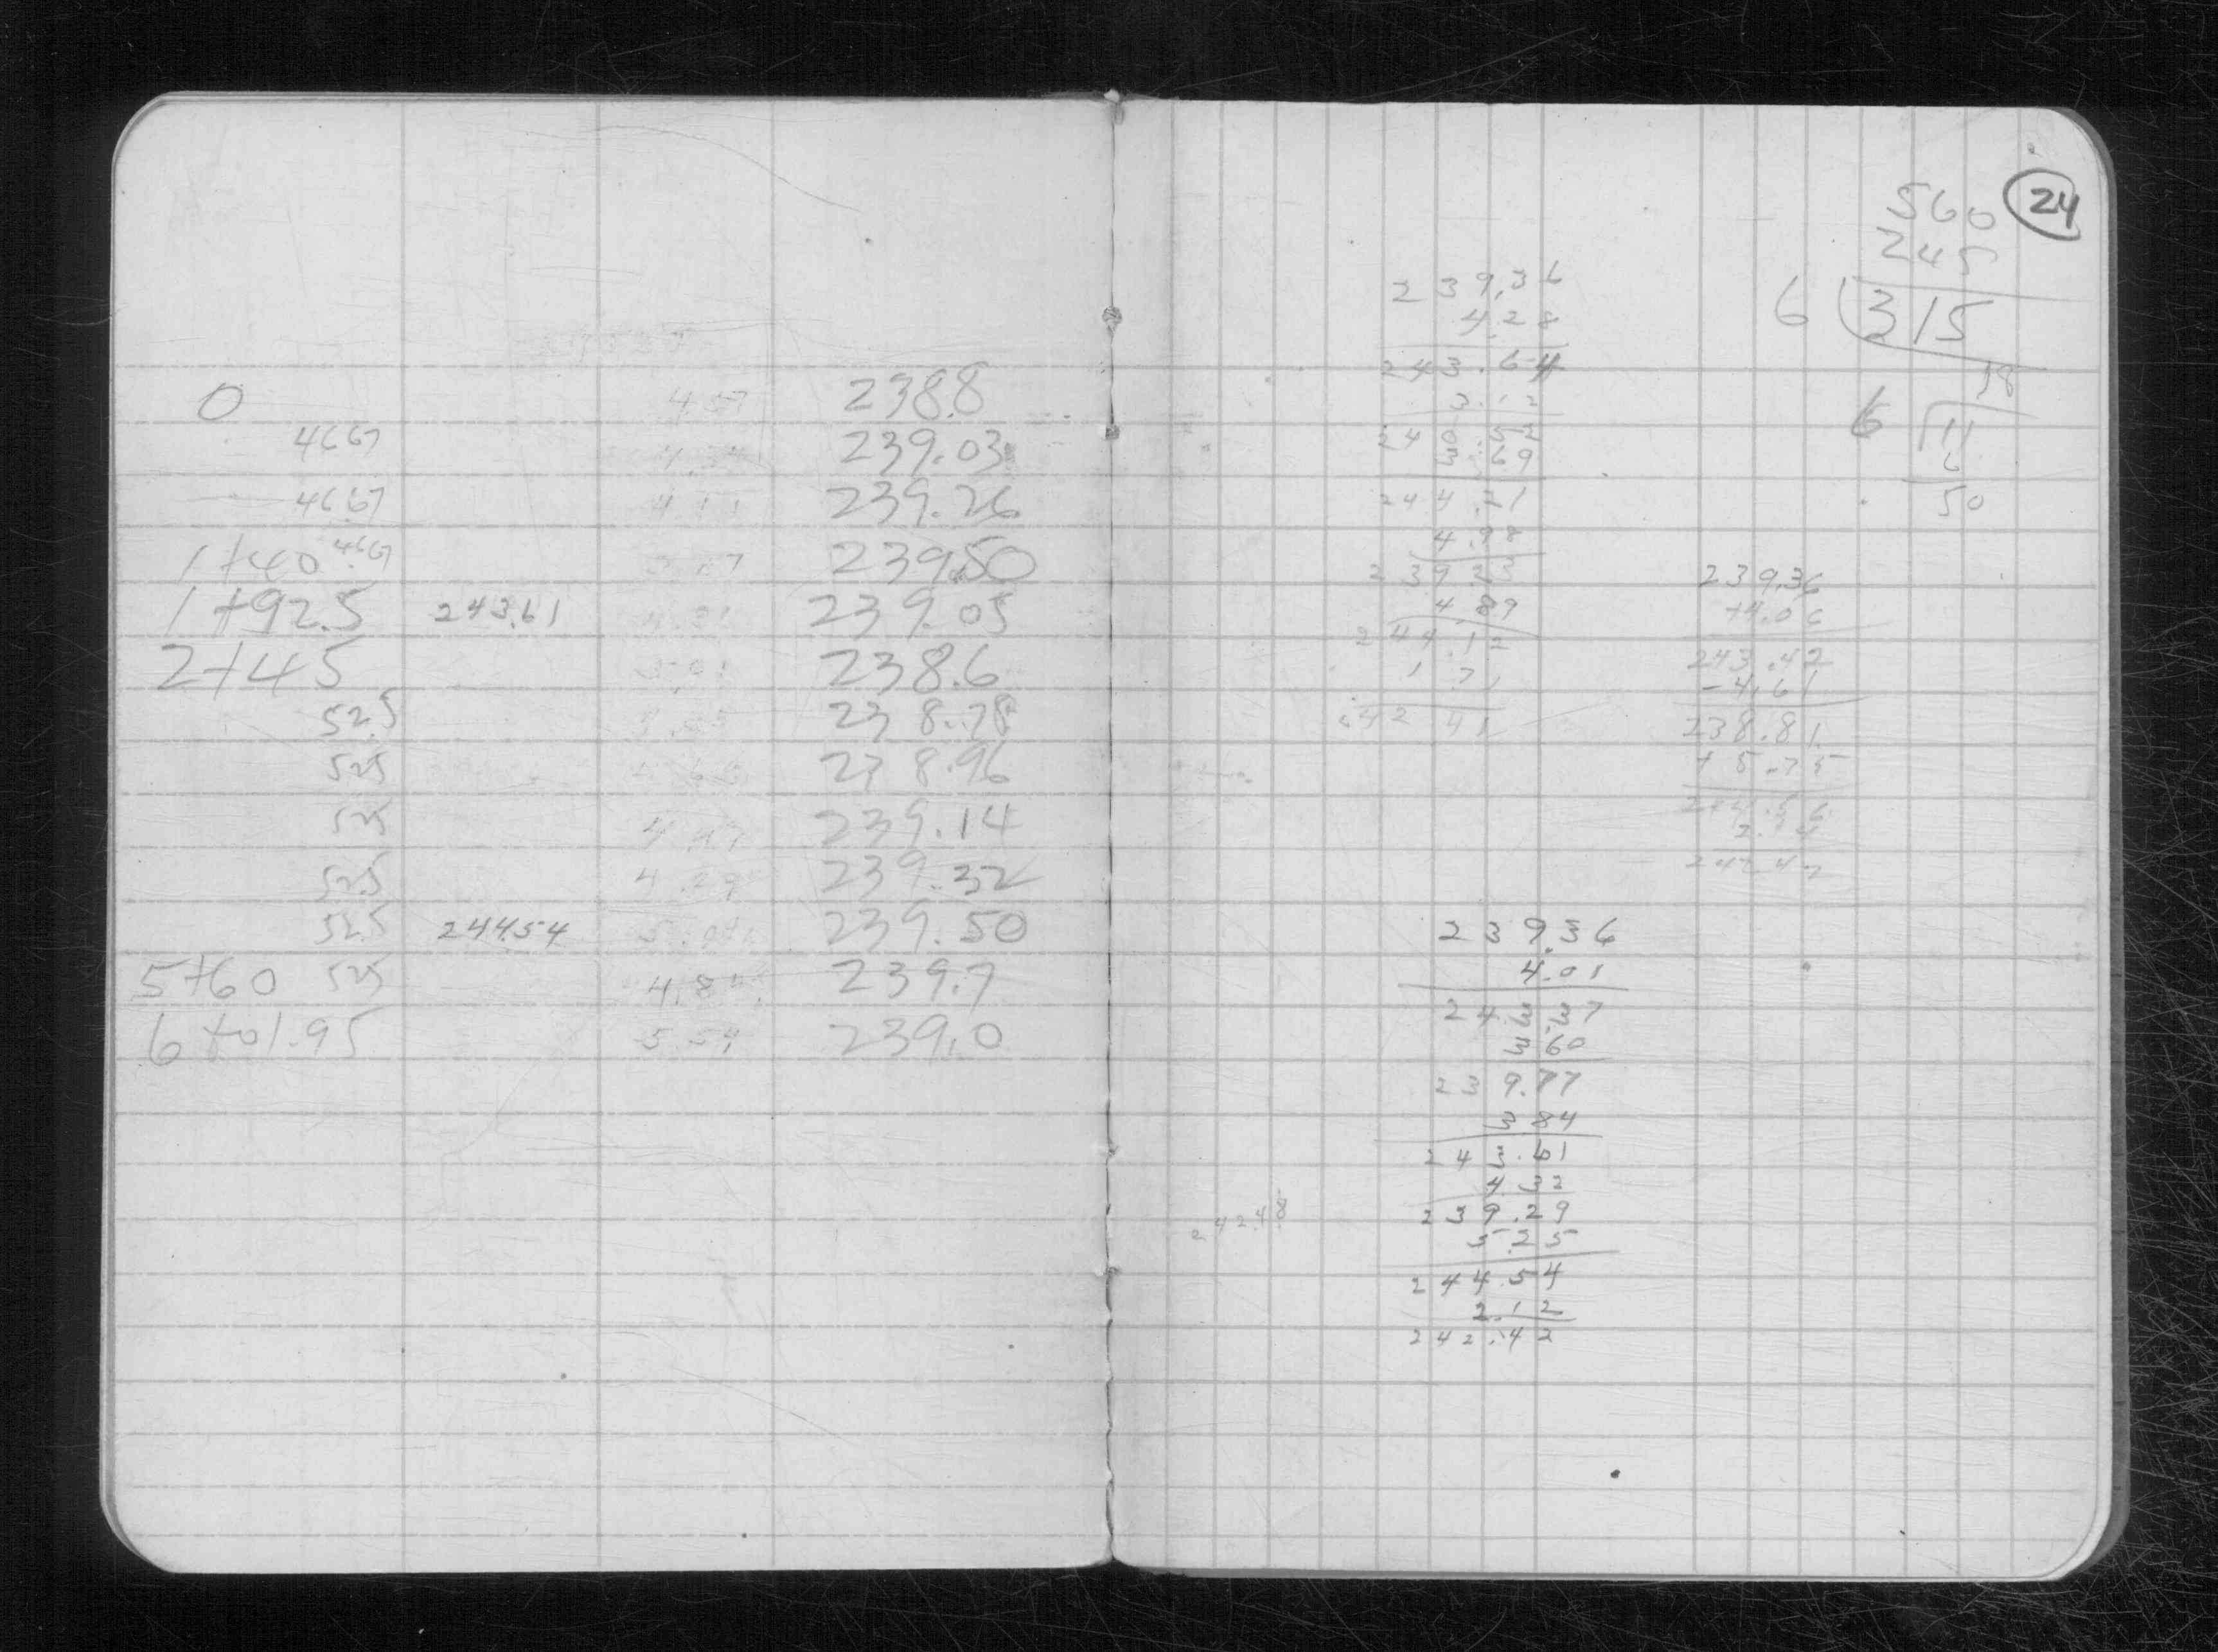 0 4.57 238.8
46.67 239.03
46.67 4.11 239.26
1+40 46.67 239.50
1+92.5 243.61 239.05
2+45 238.6
52.5 238.78
52.5 238.96
52.5 239.14
52.5 4.29 239.32
52.5 244.54 239.50
5+60 52.5 4.84 239.7
6+01.95 5.54 239.0
24
560
245
6 315
6 11
6
50
239.36
4.28
243.64
3.12
240.52
3.69
244.21
4.98
239.23
4.89
244.12
1.71
242.41
239.36
+4.06
243.42
-4.61
238.81
+5.75
244.56
242.47
239.36
4.01
243.37
3.60
239.77
3.84
243.61
4.32
239.29
5.25
244.54
2.12
242.42
242.48